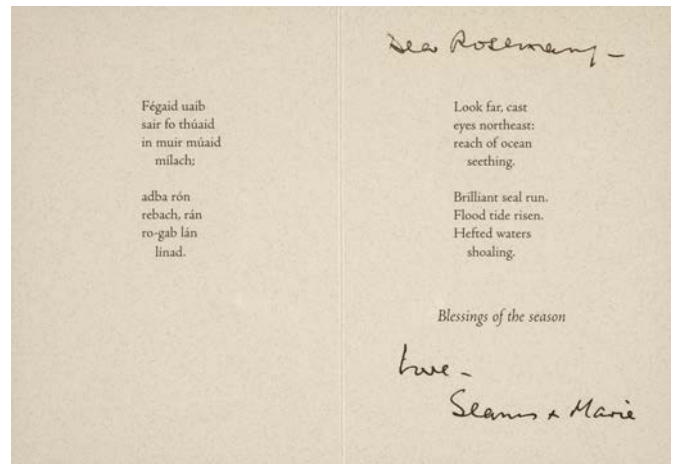 Fégaid uaib
sair fo thúaid
in muir múaid
mílach;
adba rón
rebach, rán
ro-gab lán
línad.
Dear Rosemary –
Look far, cast
eyes northeast:
reach of ocean
seething.
Brilliant seal run.
Flood tide risen.
Hefted waters
shoaling.
Blessings of the season
Love –
Seamus + Marie